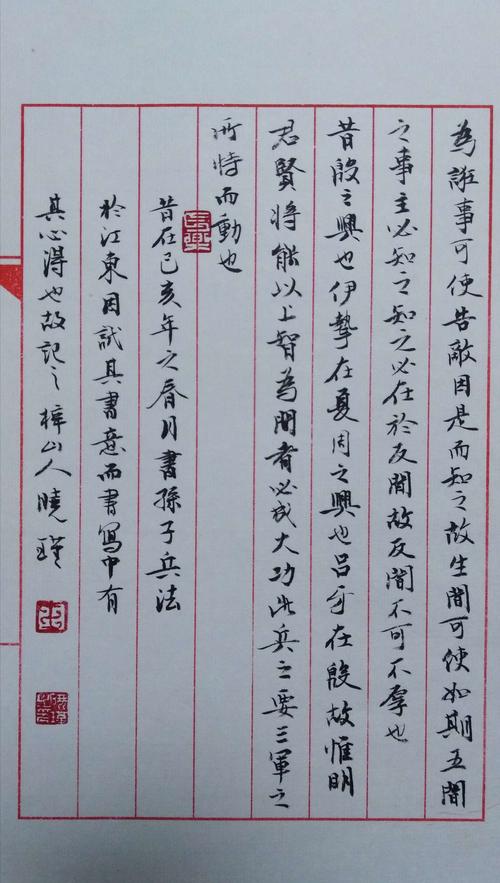 為誑事可使告敵因是而知之故生間可使如期五間
之事主必知之知之必在於反間故反間不可不厚也
昔殷之興也伊摯在夏周之興也呂牙在殷故惟明
君賢將能以上智為間者必成大功此兵之要三軍之
所恃而動也
昔在己亥年之春月書孫子兵法
於江東因試其書意而書寫中有
其心得也故記之 梓山人曉瑾